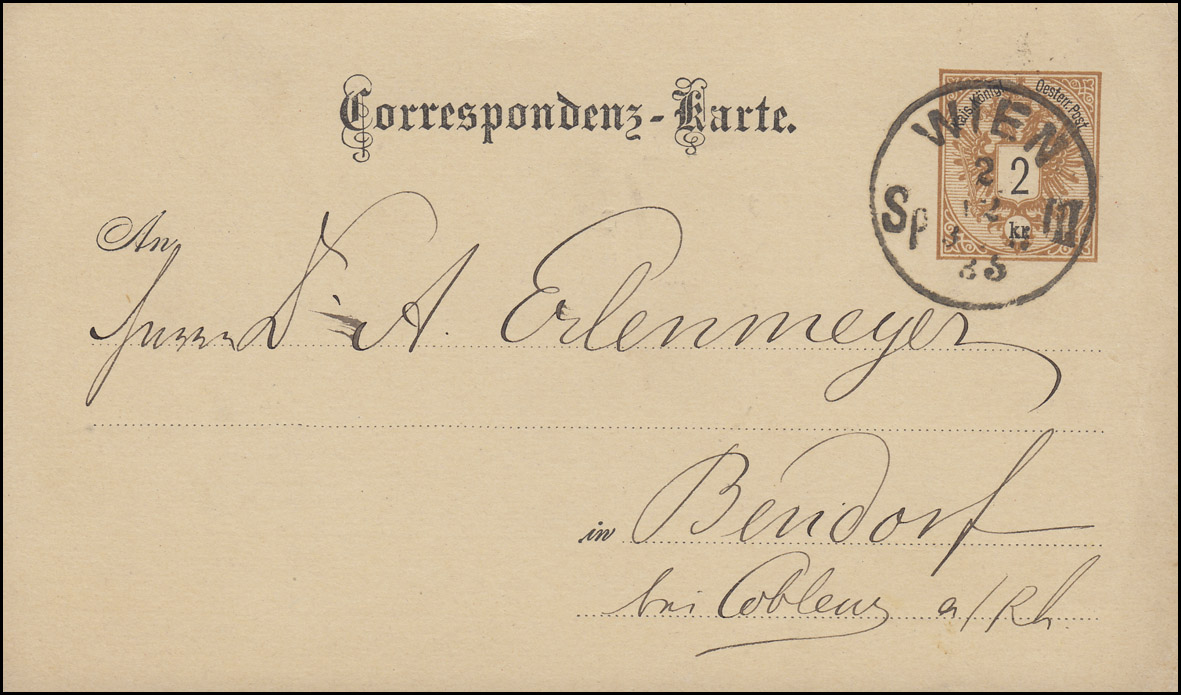 Correspondenz-Karte.
Kais. Königl. Oesterr. Post
2
kr
WIEN
2
12
Sp III
88
An
Herrn Dr. A. Erlenmeyer
in Bendorf
bei Coblenz a/Rh.